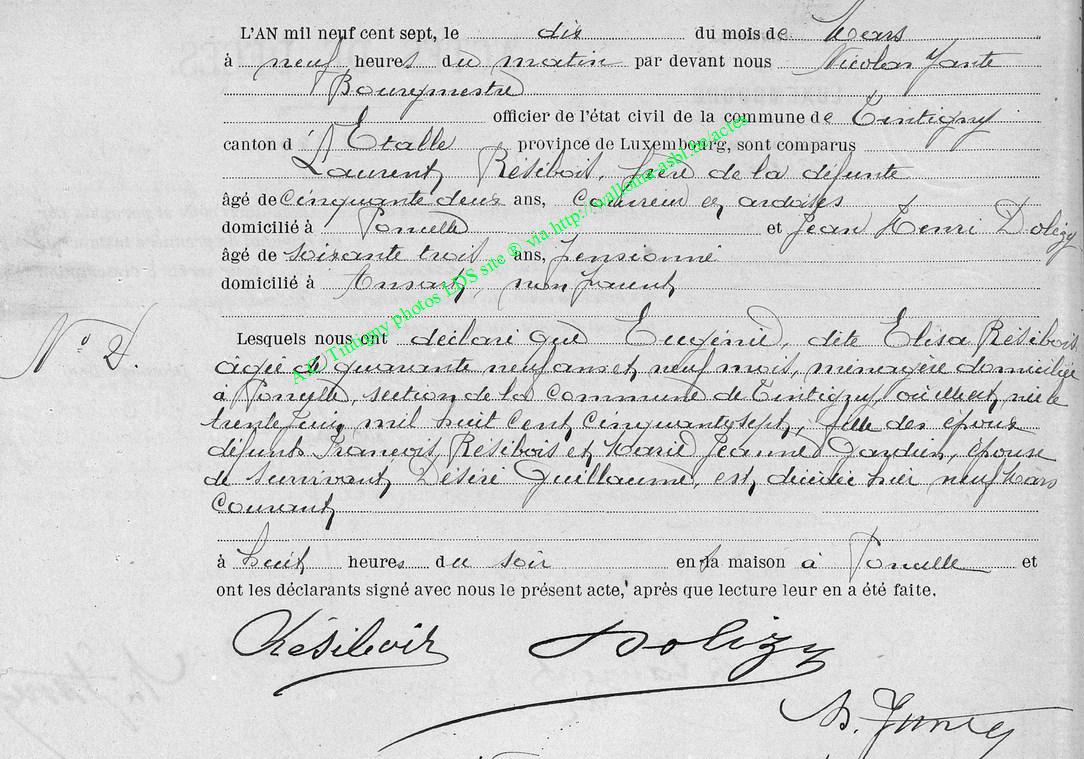 L'AN mil neuf cent sept, le dix du mois de Mars
à neuf heures du matin par devant nous Nicolas
Bourgmestre
officier de l'état civil de la commune de Tintigny
canton d'Etalle province de Luxembourg, sont comparus
Laurent Résibois, frère de la défunte
âgé de cinquante deux ans, couvreur en ardoises
domicilié à Poncelle et Jean Henri Dolizy
âgé de soixante trois ans, pensionné
domicilié à Ansart, non parent
N° 2.
Lesquels nous ont déclaré que Eugénie, dite Elisa Résibois
âgée de quarante neuf ans et neuf mois, ménagère domiciliée
à Poncelle, section de la commune de Tintigny, où elle est née le
trente juin mil huit cent cinquante sept, fille des époux
défunts François Résibois et Marie Jeanne épouse
de survivant Désiré Guillaume, est décédée hier neuf Mars
courant
à huit heures du soir en sa maison à Poncelle et
ont les déclarants signé avec nous le présent acte, après que lecture leur en a été faite.
Résibois Dolizy
A.E. Tintigny photos LDS site ® via http://wallonia.asbl.be/actes